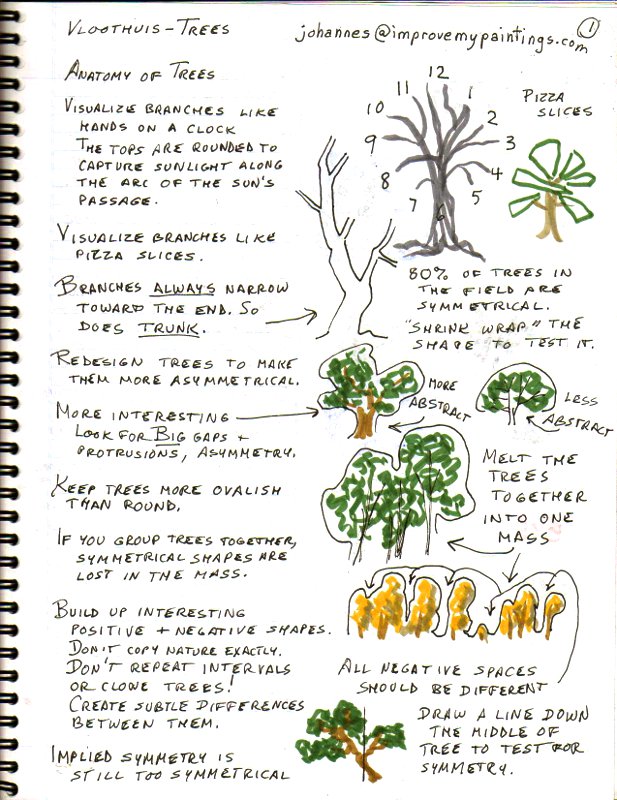 Vloothuis - Trees
johannes@improvemypaintings.com
1
Anatomy of Trees
Visualize branches like
hands on a clock
The tops are rounded to
capture sunlight along
the arc of the sun's
passage.
12
11
1
10
2
9
3
8
4
7
5
6
Pizza
slices
Visualize branches like
pizza slices.
Branches always narrow
toward the end. So
does trunk.
80% of trees in
the field are
symmetrical.
"Shrink wrap" the
shape to test it.
Redesign trees to make
them more asymmetrical.
More
abstract
Less
abstract
More interesting
Look for Big gaps +
protrusions, asymmetry.
Keep trees more ovalish
than round.
Melt the
trees
together
into one
mass
If you group trees together,
symmetrical shapes are
lost in the mass.
Build up interesting
positive + negative shapes.
Don't copy nature exactly.
Don't repeat intervals
or clone trees!
Create subtle differences
between them.
All negative spaces
should be different
Draw a line down
the middle of
tree to test for
symmetry.
Implied symmetry is
still too symmetrical